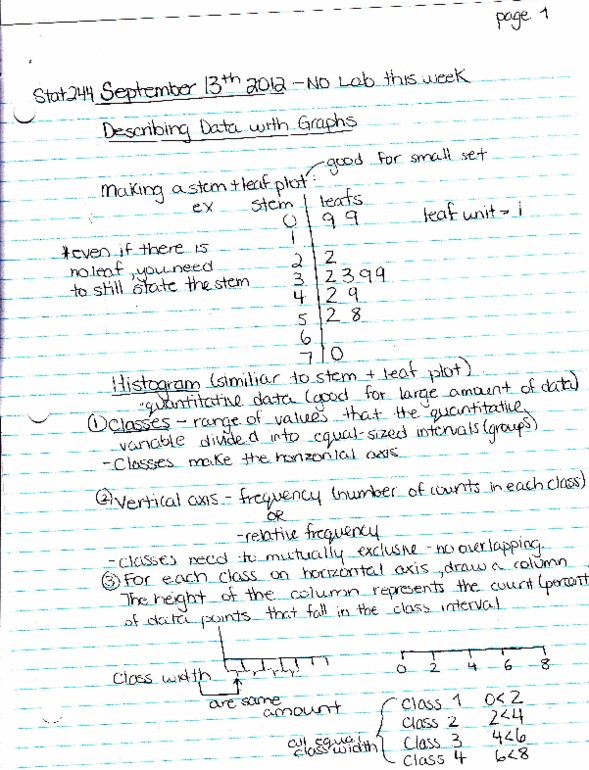 page 1
Stat244 September 13th 2012 - NO Lab this week
Describing Data with Graphs
good for small set
making a stem + leaf plot:
ex stem leafs
0 9 9 leaf unit = 1
1
*even if there is
no leaf, you need
to still state the stem
2 2
3 2 3 9 9
4 2 9
5 2 8
6
7 0
Histogram (similiar to stem + leaf plot)
- quantitative data (good for large amount of data)
① Classes - range of values that the quantitative
variable divided into equal-sized intervals (groups)
- Classes make the horizontal axis
② Vertical axis - frequency (number of counts in each class)
OR
- relative frequency
- classes need to mutually exclusive - no overlapping.
③ For each class on horizontal axis, draw a column
The height of the column represents the count (percent
of data points that fall in the class interval
0 2 4 6 8
Class width
are same
amount
all equal
class width
Class 1 0<2
Class 2 2<4
Class 3 4<6
Class 4 6<8